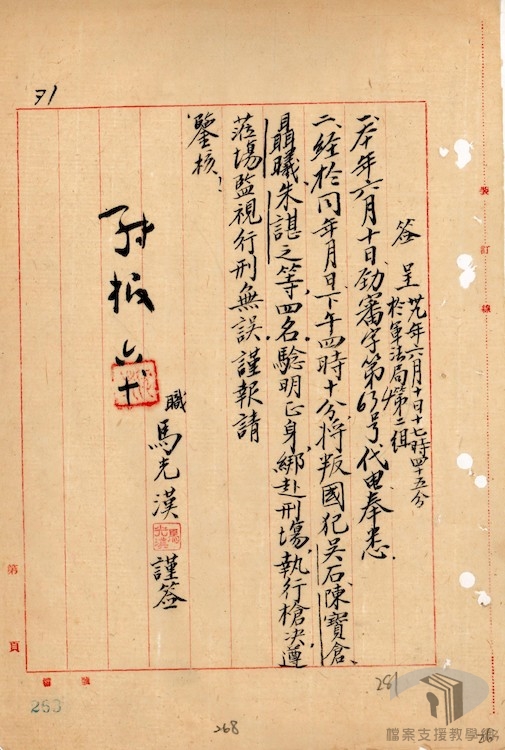 簽呈 卅九年六月十日十七時四十五分
於軍法局第二組
一、本年六月十日勁審字第63号代电奉悉.
二、經於同年月日下午四時十分將叛國犯吳石、陳寶倉、
聶曦、朱諶之等四名驗明正身,綁赴刑場,執行槍決遵
蒞場監視行刑無誤,謹報請
鑒核!
職馬光漢謹簽
71
裝訂線
第頁
檔號
253
268
281
檔案支援教學網